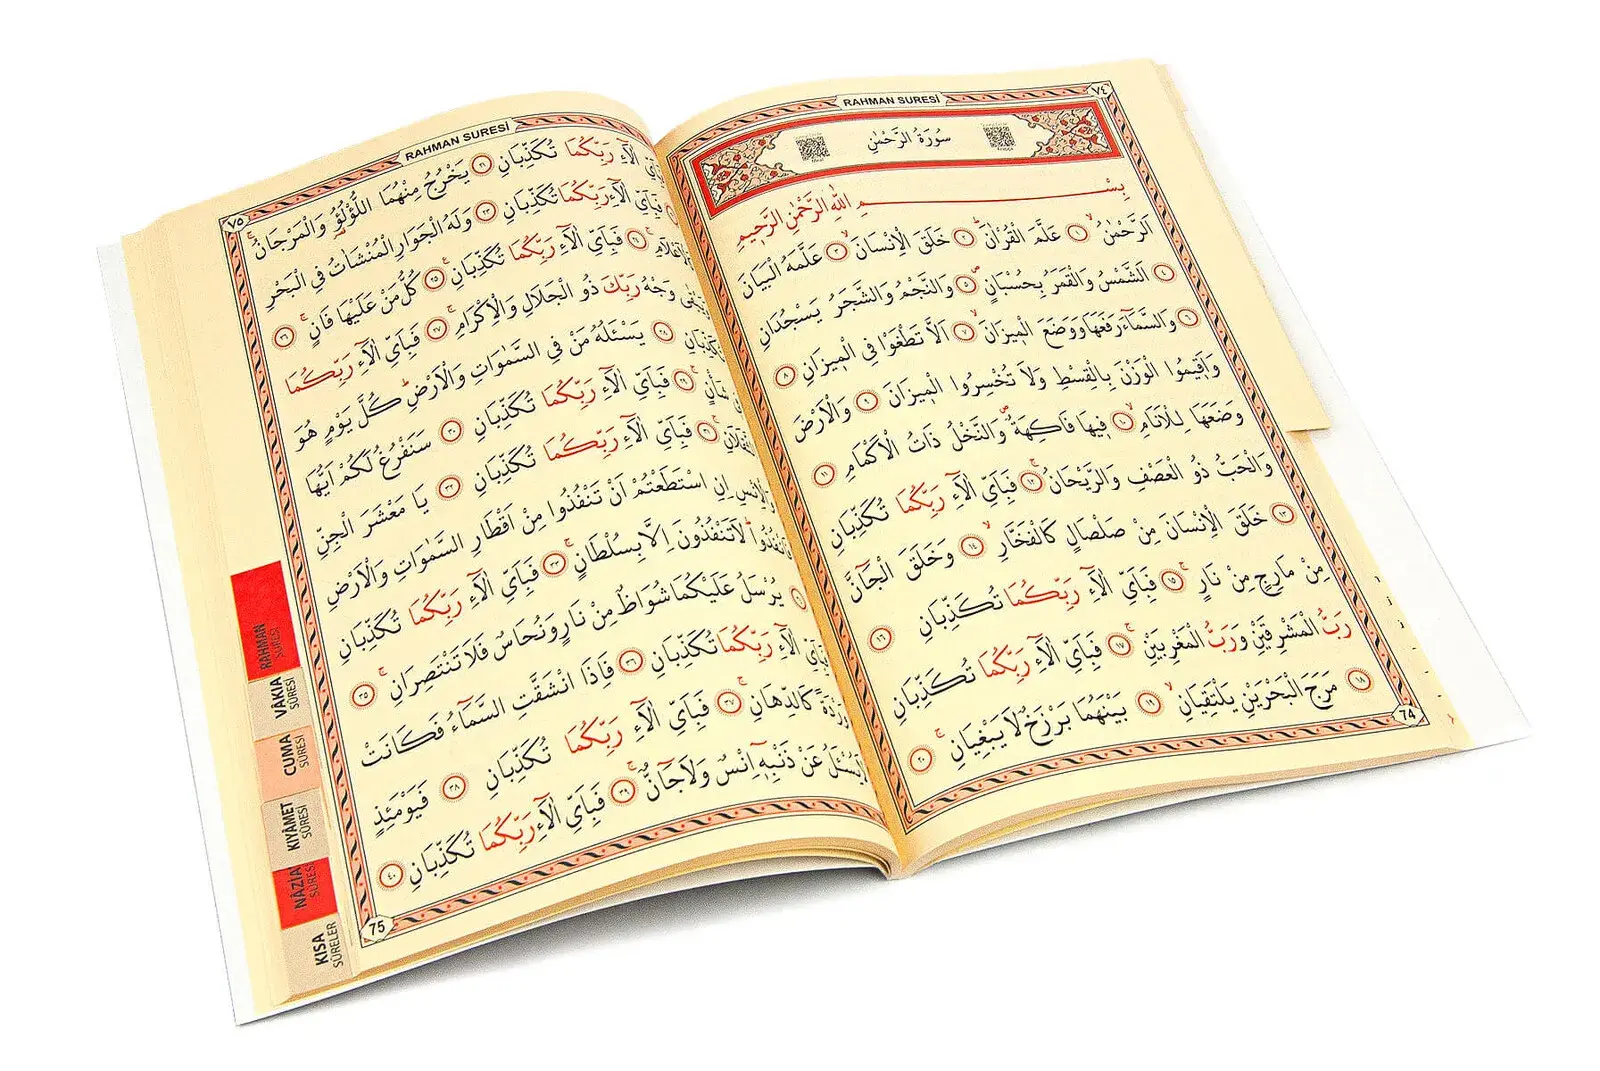 RAHMAN SURESİ
٧٤
سُورَةُ الرَّحْمٰنِ
بِسْــــــمِ اللّٰهِ الرَّحْمٰنِ الرَّحٖيمِ
اَلرَّحْمٰنُۙ ﴿١﴾ عَلَّمَ الْقُرْاٰنَۜ ﴿٢﴾ خَلَقَ الْاِنْسَانَۙ ﴿٣﴾ عَلَّمَهُ الْبَيَانَ
﴿٤﴾ اَلشَّمْسُ وَالْقَمَرُ بِحُسْبَانٍۖ ﴿٥﴾ وَالنَّجْمُ وَالشَّجَرُ يَسْجُدَانِ
﴿٦﴾ وَالسَّمَٓاءَ رَفَعَهَا وَوَضَعَ الْمٖيزَانَۙ ﴿٧﴾ اَلَّا تَطْغَوْا فِي الْمٖيزَانِ ﴿٨﴾
وَاَقٖيمُوا الْوَزْنَ بِالْقِسْطِ وَلَا تُخْسِرُوا الْمٖيزَانَ ﴿٩﴾ وَالْاَرْضَ
وَضَعَهَا لِلْاَنَامِۙ ﴿١٠﴾ فٖيهَا فَاكِهَةٌۖ وَالنَّخْلُ ذَاتُ الْاَكْمَامِ ﴿١١﴾
وَالْحَبُّ ذُو الْعَصْفِ وَالرَّيْحَانُۚ ﴿١٢﴾ فَبِاَيِّ اٰلَٓاءِ رَبِّكُمَا تُكَذِّبَانِ
﴿١٣﴾ خَلَقَ الْاِنْسَانَ مِنْ صَلْصَالٍ كَالْفَخَّارِۙ ﴿١٤﴾ وَخَلَقَ الْجَٓانَّ
مِنْ مَارِجٍ مِنْ نَارٍۚ ﴿١٥﴾ فَبِاَيِّ اٰلَٓاءِ رَبِّكُمَا تُكَذِّبَانِ ﴿١٦﴾
رَبُّ الْمَشْرِقَيْنِ وَرَبُّ الْمَغْرِبَيْنِۚ ﴿١٧﴾ فَبِاَيِّ اٰلَٓاءِ رَبِّكُمَا تُكَذِّبَانِ
﴿١٨﴾ مَرَجَ الْبَحْرَيْنِ يَلْتَقِيَانِۙ ﴿١٩﴾ بَيْنَهُمَا بَرْزَخٌ لَا يَبْغِيَانِۚ ﴿٢٠﴾
74
RAHMAN SURESİ
٧٥
اٰلَٓاءِ رَبِّكُمَا تُكَذِّبَانِ ﴿٢١﴾ يَخْرُجُ مِنْهُمَا اللُّؤْلُؤُ۬ وَالْمَرْجَانُۚ
فَبِاَيِّ اٰلَٓاءِ رَبِّكُمَا تُكَذِّبَانِ ﴿٢٣﴾ وَلَهُ الْجَوَارِ الْمُنْشَاٰتُ فِي الْبَحْرِ
كَالْاَعْلَامِۚ ﴿٢٤﴾ فَبِاَيِّ اٰلَٓاءِ رَبِّكُمَا تُكَذِّبَانِ۟ ﴿٢٥﴾ كُلُّ مَنْ عَلَيْهَا فَانٍۚ ﴿٢٦﴾
وَجْهُ رَبِّكَ ذُو الْجَلَالِ وَالْاِكْرَامِۚ ﴿٢٧﴾ فَبِاَيِّ اٰلَٓاءِ رَبِّكُمَا
تُكَذِّبَانِ ﴿٢٨﴾ يَسْـَٔلُهُ مَنْ فِي السَّمٰوَاتِ وَالْاَرْضِۜ كُلَّ يَوْمٍ هُوَ
شَأْنٍۚ ﴿٢٩﴾ فَبِاَيِّ اٰلَٓاءِ رَبِّكُمَا تُكَذِّبَانِ ﴿٣٠﴾ سَنَفْرُغُ لَكُمْ اَيُّهَ
الثَّقَلَانِۚ ﴿٣١﴾ فَبِاَيِّ اٰلَٓاءِ رَبِّكُمَا تُكَذِّبَانِ ﴿٣٢﴾ يَا مَعْشَرَ الْجِنِّ
وَالْاِنْسِ اِنِ اسْتَطَعْتُمْ اَنْ تَنْفُذُوا مِنْ اَقْطَارِ السَّمٰوَاتِ وَالْاَرْضِ
فَانْفُذُواۜ لَا تَنْفُذُونَ اِلَّا بِسُلْطَانٍۚ ﴿٣٣﴾ فَبِاَيِّ اٰلَٓاءِ رَبِّكُمَا تُكَذِّبَانِ
يُرْسَلُ عَلَيْكُمَا شُوَاظٌ مِنْ نَارٍ وَنُحَاسٌ فَلَا تَنْتَصِرَانِۚ ﴿٣٥﴾
اٰلَٓاءِ رَبِّكُمَا تُكَذِّبَانِ ﴿٣٦﴾ فَاِذَا انْشَقَّتِ السَّمَٓاءُ فَكَانَتْ
وَرْدَةً كَالدِّهَانِۚ ﴿٣٧﴾ فَبِاَيِّ اٰلَٓاءِ رَبِّكُمَا تُكَذِّبَانِ ﴿٣٨﴾ فَيَوْمَئِذٍ
يُسْـَٔلُ عَنْ ذَنْبِهٖٓ اِنْسٌ وَلَا جَٓانٌّۚ ﴿٣٩﴾ فَبِاَيِّ اٰلَٓاءِ رَبِّكُمَا تُكَذِّبَانِ ﴿٤٠﴾
75
RAHMAN SURESİ
VÂKIA SURESİ
CUMA SURESİ
KIYÂMET SURESİ
NÂZİA SURESİ
KISA SÛRELER